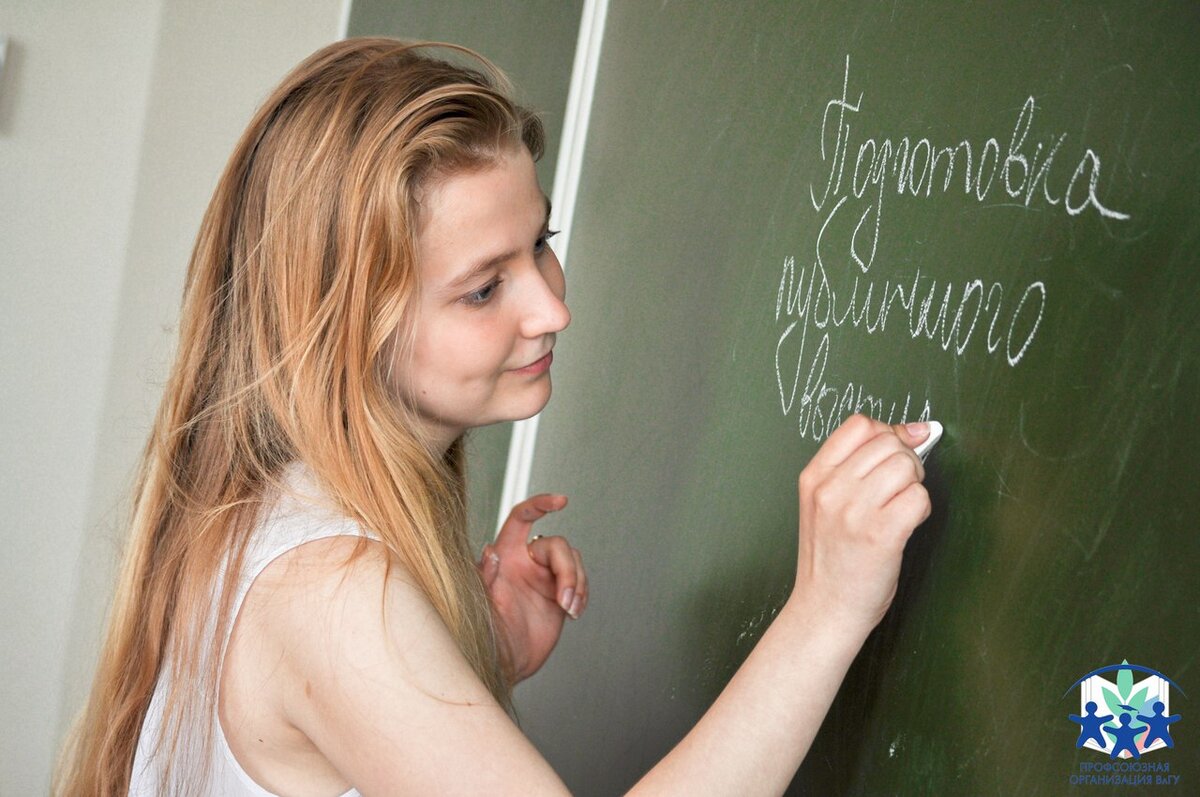 Подготовка
публичного
выступл
ПРОФСОЮЗНАЯ
ОРГАНИЗАЦИЯ ВлГУ